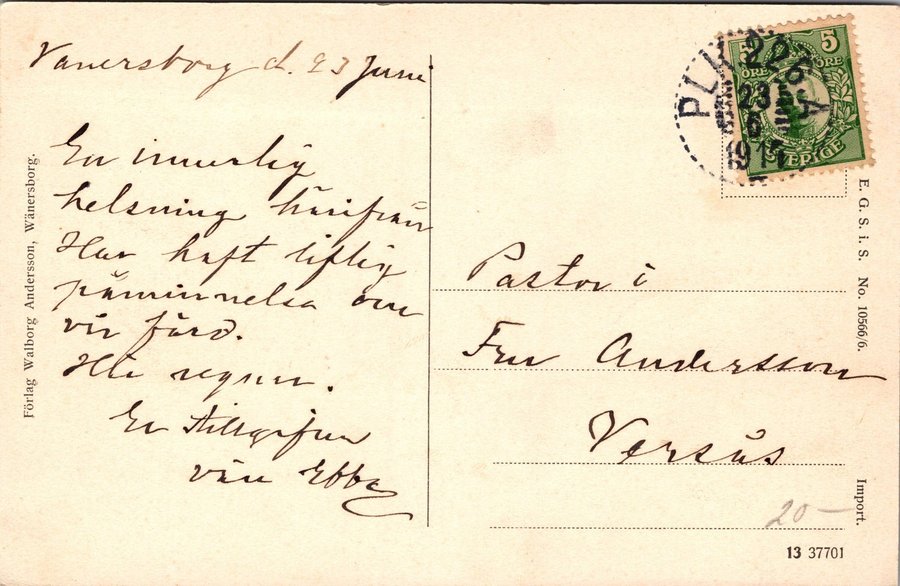 Vänersborg d. 23 Juni
En innerlig
helsning härifrån
Har haft liflig
påminnelse om
vår färd.
Här regnar.
Er tillgifna
vän Ebba
Förlag Walborg Andersson, Wänersborg.
PLK 226.A
23
6
1914
5 5
ÖRE ÖRE
SVERIGE
E. G. S. i. S. No. 10566/6.
Pastor i
Fru Andersson
Versås
Import.
20 —
13 37701